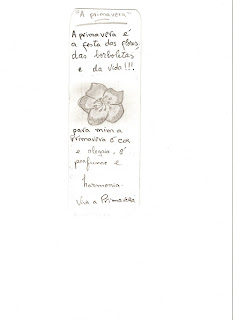 "A primavera"
A primavera é
a festa das flores,
das borboletas
e da vida!!!.
para mim a
Primavera é cor
e alegria, é
perfume e
harmonia.
Viva a Primavera